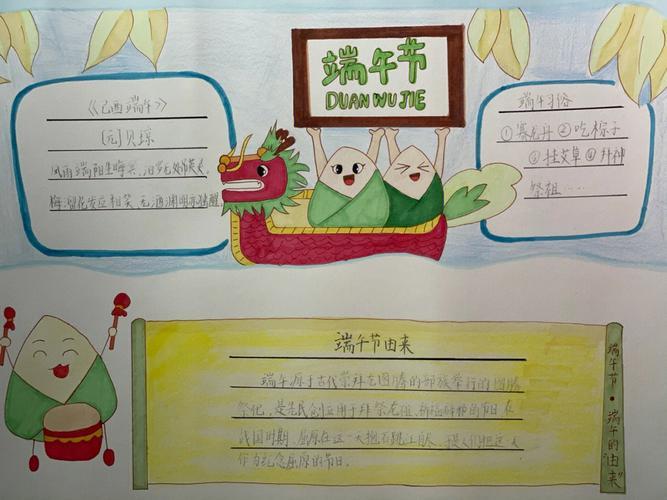 端午节
DUAN WU JIE
《己酉端午》
[元]贝琼
风雨端阳生晦冥，汨罗无处吊英灵。
海榴花发应相笑，无酒渊明亦独醒。
端午习俗
①赛龙舟②吃粽子
③挂艾草④拜神
祭祖……
端午节由来
端午源于古代崇拜龙图腾的部族举行的图腾
祭祀，是先民创立用于拜祭龙祖、祈福辟邪的节日。在
战国时期，屈原在这一天抱石跳江自尽，
作为纪念屈原的节日。
端午节·端午的"由来"